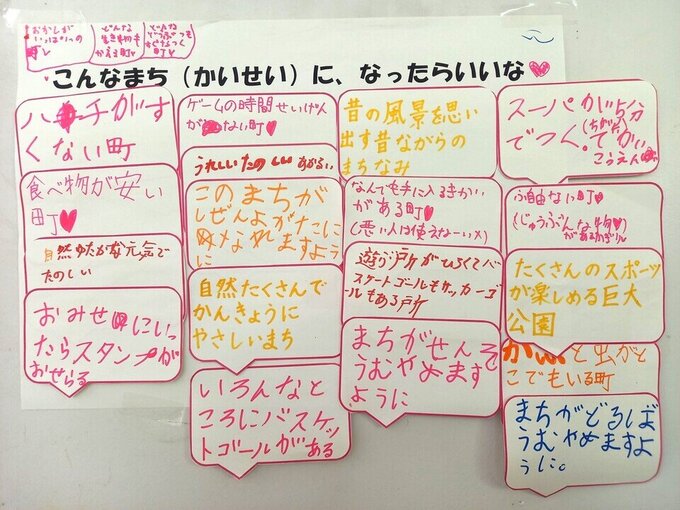 おかしが
いっぱいの
どんな
生き物も
かえる町
どんな
どうぶつも
町
こんなまち（かいせい）に、なったらいいな
ハチがす
くない町
食べ物が安い
町
自然ゆたかな元気で
たのしい
おみせにいっ
たらスタンプが
おせらる
ゲームの時間せいげん
がない町
うれしいたのしいあかるい
このまちが
しぜんよがたこに
めなれますよう
に
自然たくさんで
かんきょうに
やさしいまち
いろんなと
ころにバスケッ
トゴールがある
昔の風景を思い
出す昔ながらの
まちなみ
なんでも手に入るきかい
がある町
(悪い人は使えなーいメ)
遊ぶ所がひろくてバ
スケートゴールもサッカーゴ
ールもある所
まちがせんそ
うむやめます
ように
スーパが5分
でつく。でかい
こうえん
ふ自由ない町
(じゅうぶんな物
がある
たくさんのスポーツ
が楽しめる巨大
公園
と虫がど
こでもいる町
まちがどるぼ
うむやめますよ
うに。